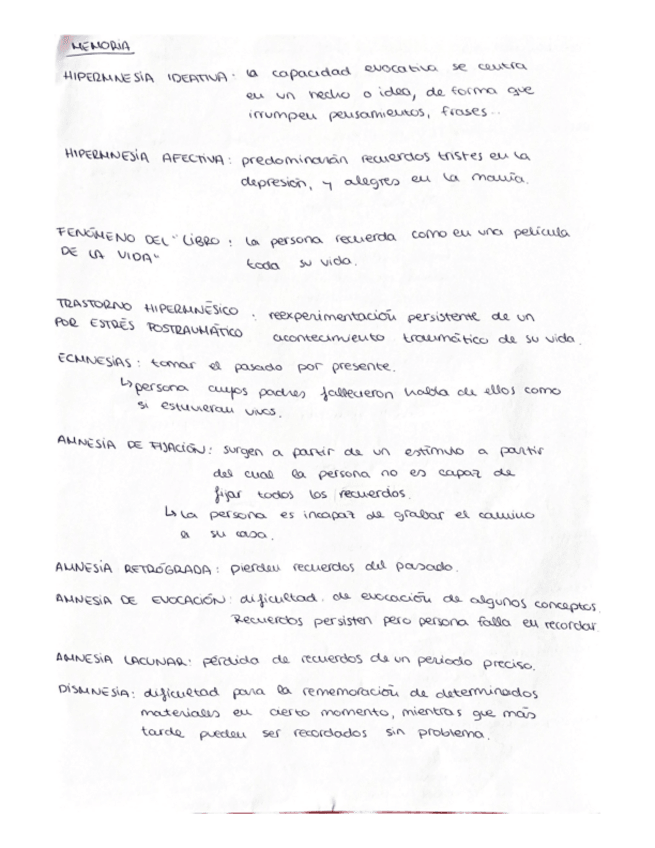 MEMORIA
HIPERMNESÍA IDEATIVA: la capacidad evocativa se centra
en un hecho o idea, de forma que
irrumpen pensamientos, frases...
HIPERMNESÍA AFECTIVA: predominarán recuerdos tristes en la
depresión, y alegres en la manía.
FENÓMENO DEL "LIBRO : la persona recuerda como en una película
DE LA VIDA" toda su vida.
TRASTORNO HIPERMNÉSICO : reexperimentación persistente de un
POR ESTRÉS POSTRAUMÁTICO acontecimiento traumático de su vida.
ECMNESIAS: tomar el pasado por presente.
↳ persona cuyos padres fallecieron habla de ellos como
si estuvieran vivos.
AMNESIA DE FIJACIÓN: surgen a partir de un estímulo a partir
del cual la persona no es capaz de
fijar todos los recuerdos.
↳ La persona es incapaz de grabar el camino
a su casa.
AMNESIA RETRÓGRADA: pierden recuerdos del pasado.
AMNESIA DE EVOCACIÓN: dificultad de evocación de algunos conceptos.
Recuerdos persisten pero persona falla en recordar
AMNESIA LACUNAR: pérdida de recuerdos de un período preciso.
DISMNESIA: dificultad para la rememoración de determinados
materiales en cierto momento, mientras que más
tarde pueden ser recordados sin problema.